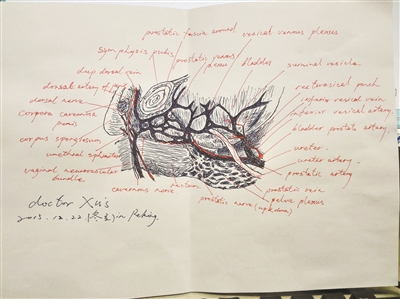 prostatic fascia around
vesical venous plexus
symphysis pubis
prostatic venous
plexus
bladder
seminal vesicle
deep dorsal vein
dorsal artery of penis
rectovesical pouch
dorsal nerve
inferior vesical vein
corpora cavernosa
penis
inferior vesical artery
bladder prostate artery
corpus spongiosum
urethral sphincter
ureter
ureter artery
vaginal neurovascular
bundle
prostatic artery
cavernous nerve
rectum
prostatic vein
pelvic plexus
prostatic nerve (up & down)
doctor Xu's
2015.12.22 in Peking